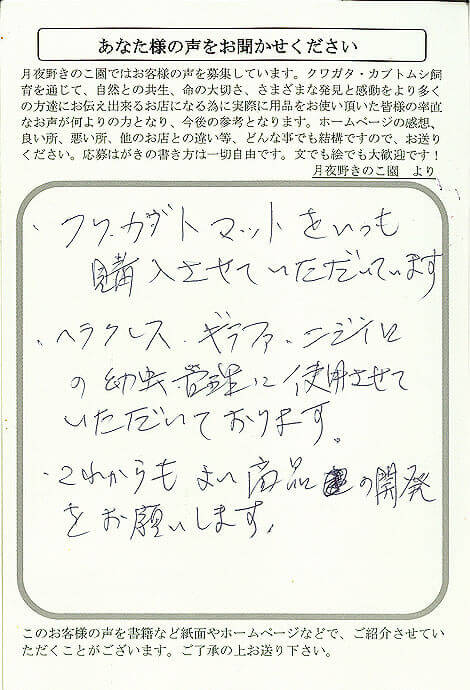 あなた様の声をお聞かせください
月夜野きのこ園ではお客様の声を募集しています。クワガタ・カブトムシ飼
育を通じて、自然との共生、命の大切さ、さまざまな発見と感動をより多く
の方達にお伝え出来るお店になる為に実際に用品をお使い頂いた皆様の率直
なお声が何よりの力となり、今後の参考となります。ホームページの感想、
良い所、悪い所、他のお店との違い等、どんな事でも結構ですので、お送り
ください。応募はがきの書き方は一切自由です。文でも絵でも大歓迎です！
月夜野きのこ園　より
・フワ・カブトマットをいつも
購入させていただいています
・ヘラクレス・ギラファ・ニジイロ
の幼虫管理に使用させて
いただいております。
・これからもよい商品の開発
をお願いします。
このお客様の声を書籍など紙面やホームページなどで、ご紹介させてい
ただくことがございます。ご了承の上お送り下さい。